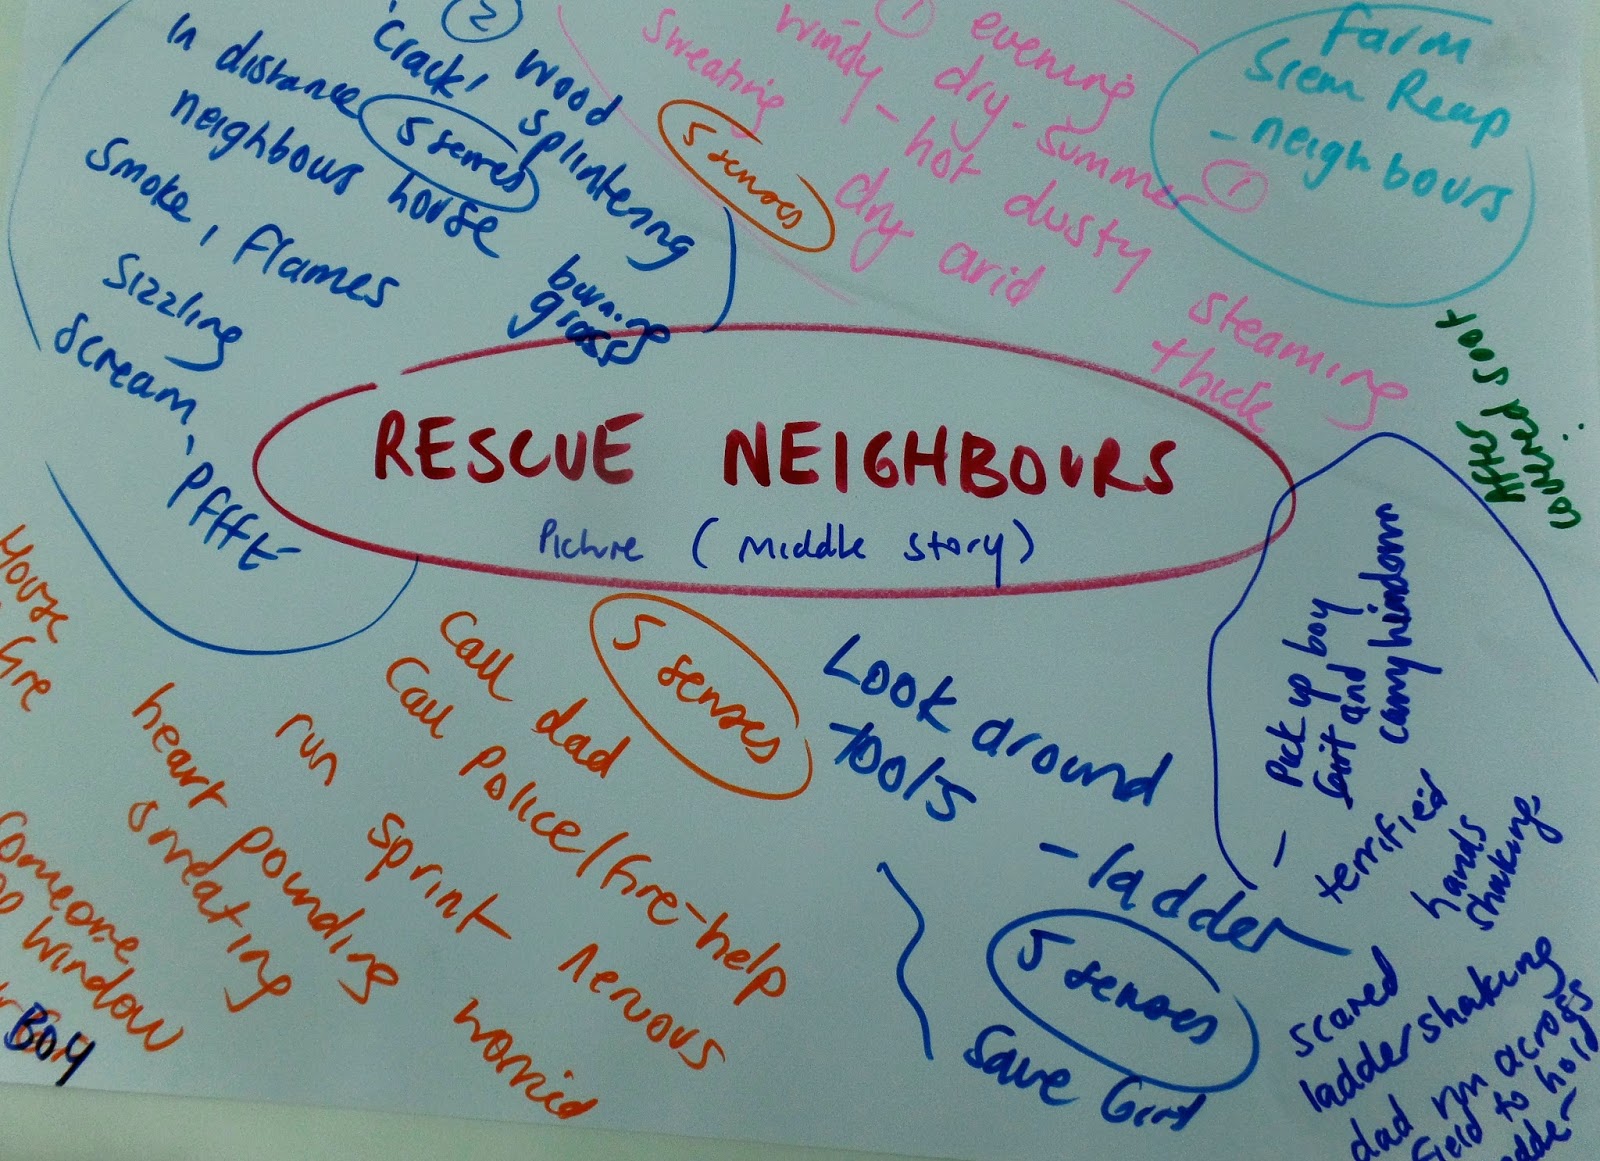 RESCUE NEIGHBOURS
Picture (middle story)
Farm
Siem Reap
- neighbours
1
evening
windy - dry - summer
1
sweating
hot dusty
dry arid
steaming
thick
5 senses
2
'crack' wood
splintering
In distance
neighbours house
5 senses
burning
grass
smoke, flames
sizzling
scream, pffft
House
fire
someone
window
BOY
heart pounding
sweating
run sprint nervous
worried
call dad
call police/fire-help
5 senses
Look around
-tools
-ladder
5 senses
Save Girl
- Pick up boy
girl and
carry him down
After
covered soot
terrified
hands
shaking
scared
ladder shaking
dad run across
field to hold